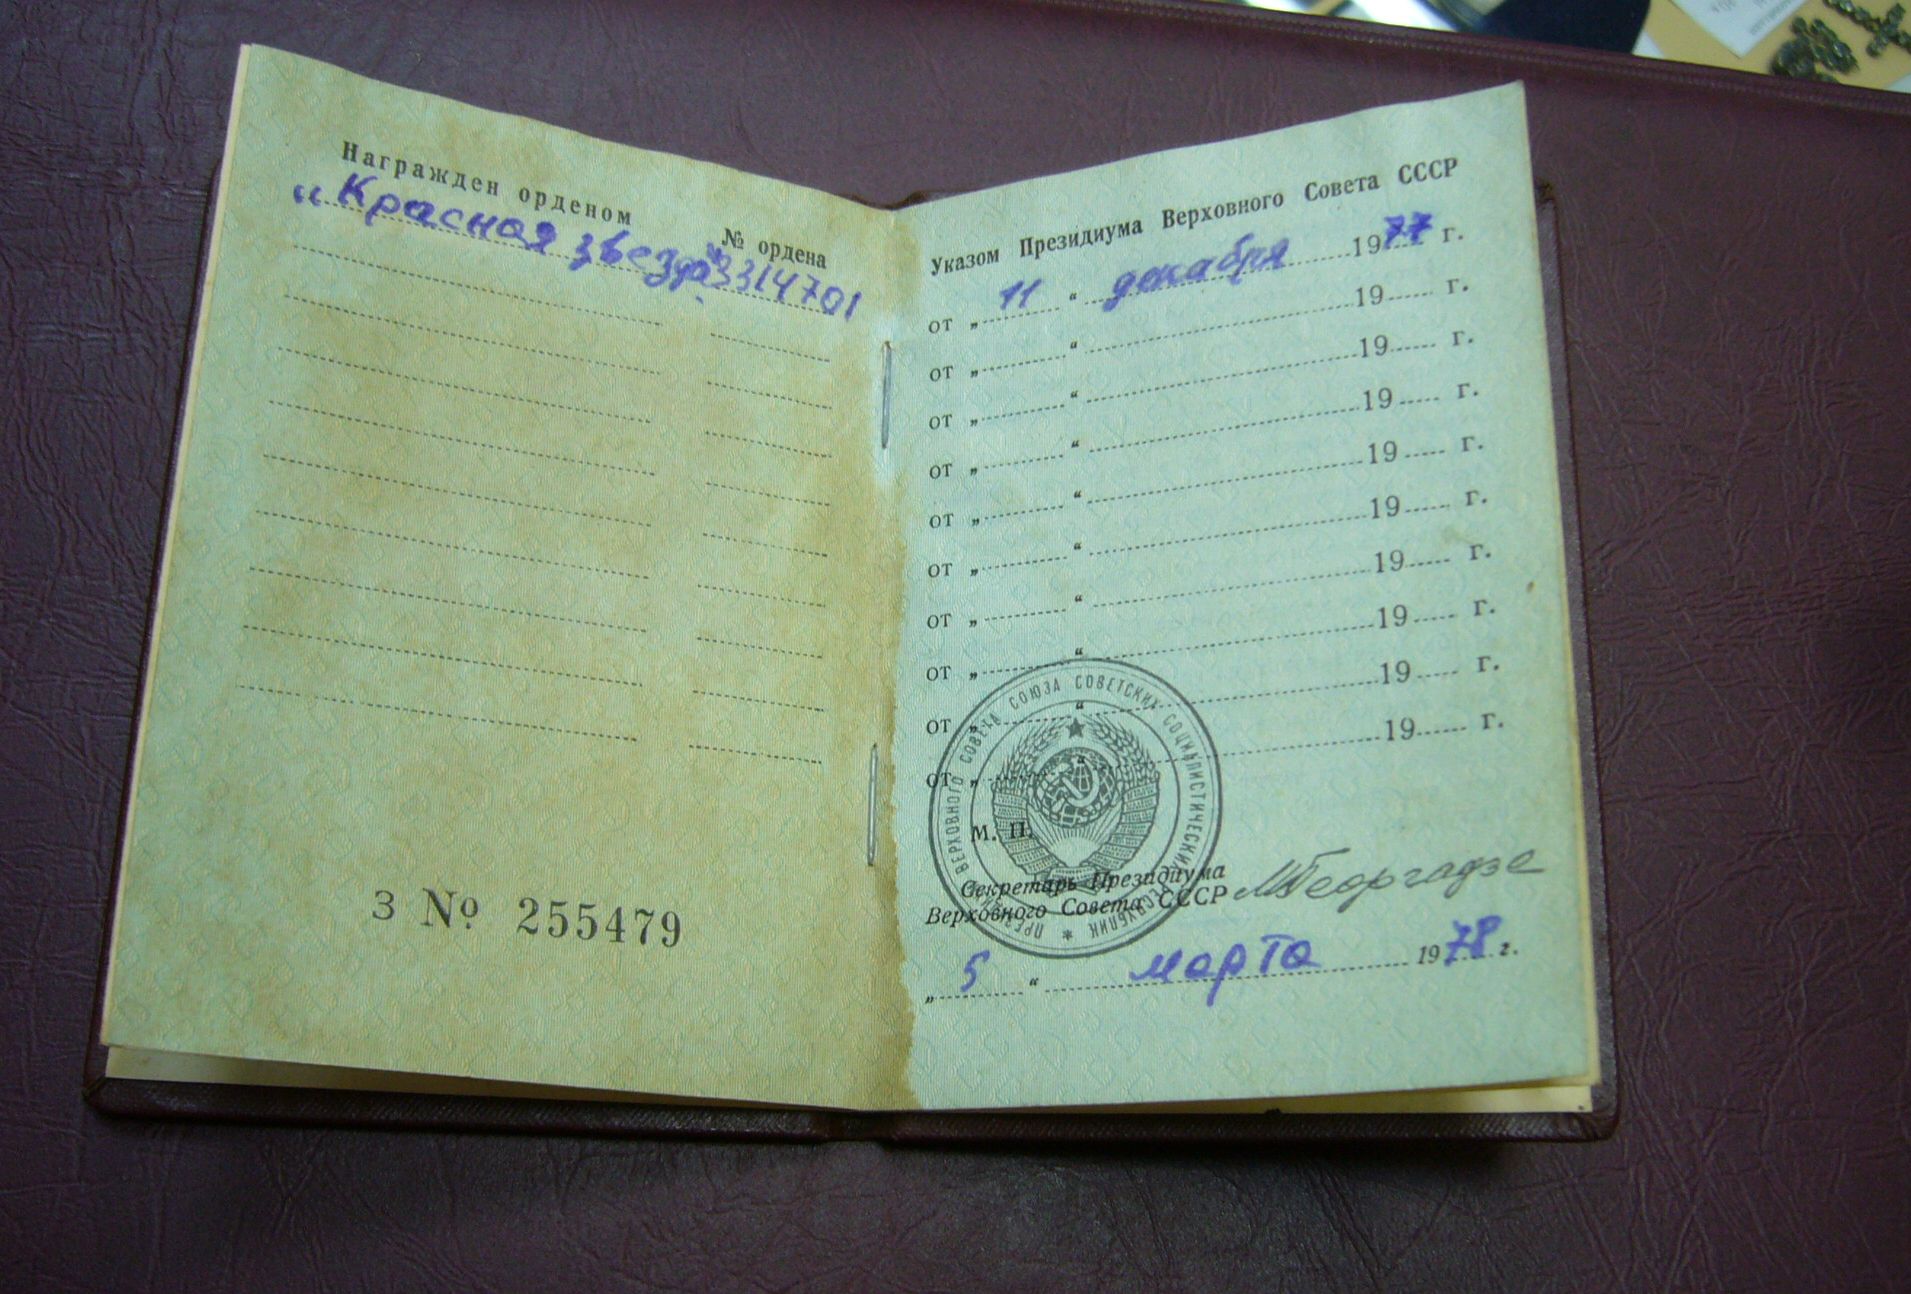 Награжден орденом
№ ордена
„Красная звезда" 3314701
З № 255479
Указом Президиума Верховного Совета СССР
от „ 11 “ декабря 1977 г.
от „ “ 19 г.
от „ “ 19 г.
от „ “ 19 г.
от „ “ 19 г.
от „ “ 19 г.
от „ “ 19 г.
от „ “ 19 г.
от „ “ 19 г.
от „ “ 19 г.
М. П.
ПРЕЗИДИУМ ВЕРХОВНОГО СОВЕТА СОЮЗА СОВЕТСКИХ СОЦИАЛИСТИЧЕСКИХ РЕСПУБЛИК *
Секретарь Президиума
Верховного Совета СССР МГеоргадзе
„ 5 “ марта 1978 г.